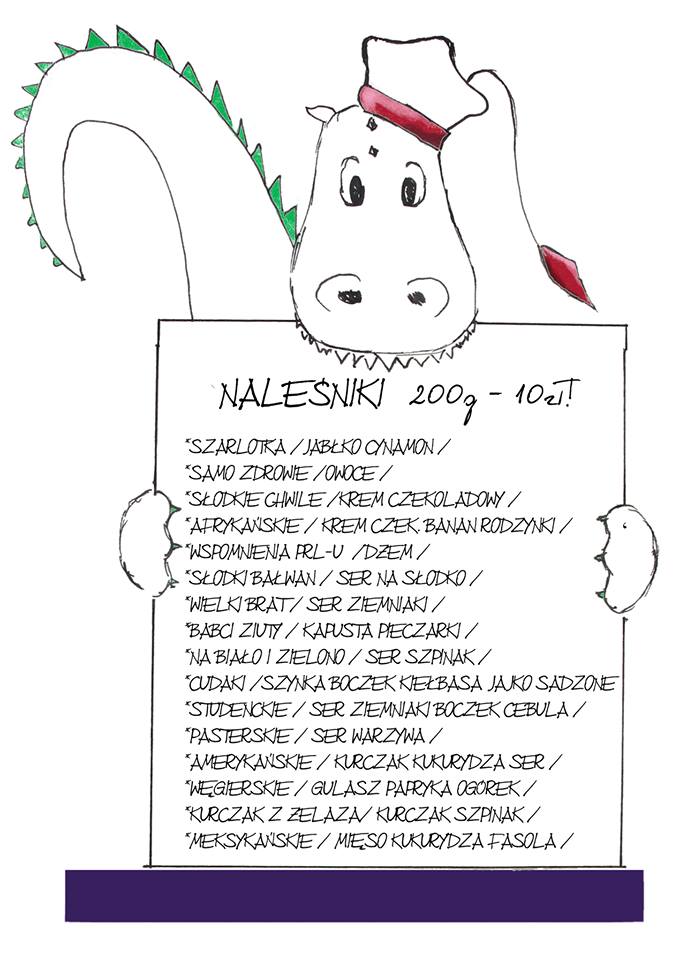 NALEŚNIKI 200g - 10zł!
*SZARLOTKA / JABŁKO CYNAMON /
*SAMO ZDROWIE /OWOCE /
*SŁODKIE CHWILE /KREM CZEKOLADOWY /
*AFRYKAŃSKIE / KREM CZEK. BANAN RODZYNKI /
*WSPOMNIENIA PRL-U /DŻEM /
*SŁODKI BAŁWAN / SER NA SŁODKO /
*WIELKI BRAT / SER ZIEMNIAKI /
*BABCI ZIUTY / KAPUSTA PIECZARKI /
*NA BIAŁO I ZIELONO / SER SZPINAK /
*CUDAKI /SZYNKA BOCZEK KIEŁBASA JAJKO SADZONE
*STUDENCKIE / SER ZIEMNIAKI BOCZEK CEBULA /
*PASTERSKIE / SER WARZYWA /
*AMERYKAŃSKIE / KURCZAK KUKURYDZA SER /
*WĘGIERSKIE / GULASZ PAPRYKA OGÓREK /
*KURCZAK Z ŻELAZA/ KURCZAK SZPINAK /
*MEKSYKAŃSKIE / MIĘSO KUKURYDZA FASOLA /